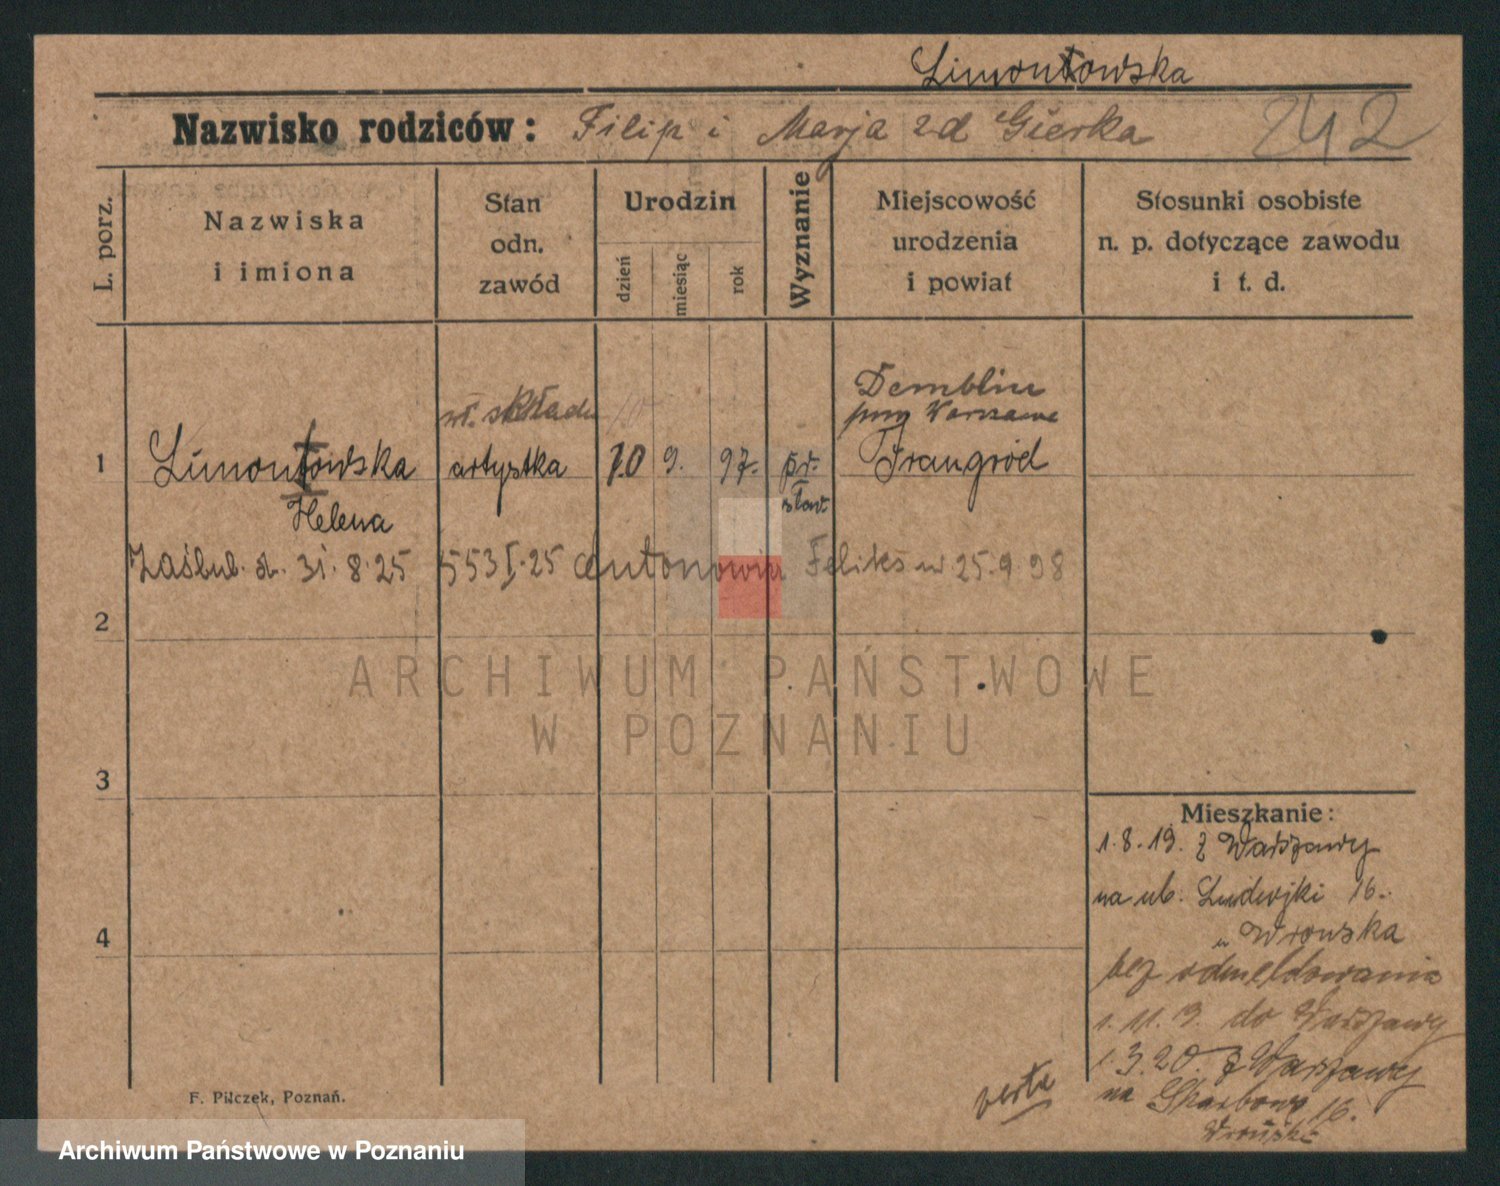 Limontowska
Nazwisko rodziców: Filip i Marja zd Gierka 242
L. porz.
Nazwiska
i imiona
Stan
odn.
zawód
Urodzin
dzień
miesiąc
rok
Wyznanie
Miejscowość
urodzenia
i powiat
Stosunki osobiste
n. p. dotyczące zawodu
i t. d.
wł. składu
Demblin
pow Warszawa
1 Limontowska artystka 10 9. 97. pr. Irangród
Helena sław.
Zaślub. d. 31. 8. 25 553 I. 25 Antonowin Feliks ur 25. 9 98
2
ARCHIWUM PAŃSTWOWE
W POZNANIU
3
Mieszkanie:
1. 8. 19. z Warszawy
na ul. 16.
" Wronska
4
bez odmeldowania
1. 11. 9. do Warszawy
1. 3. 20. z Warszawy
na Skarbowa 16.
verte
F. Pilczek, Poznań.
Archiwum Państwowe w Poznaniu